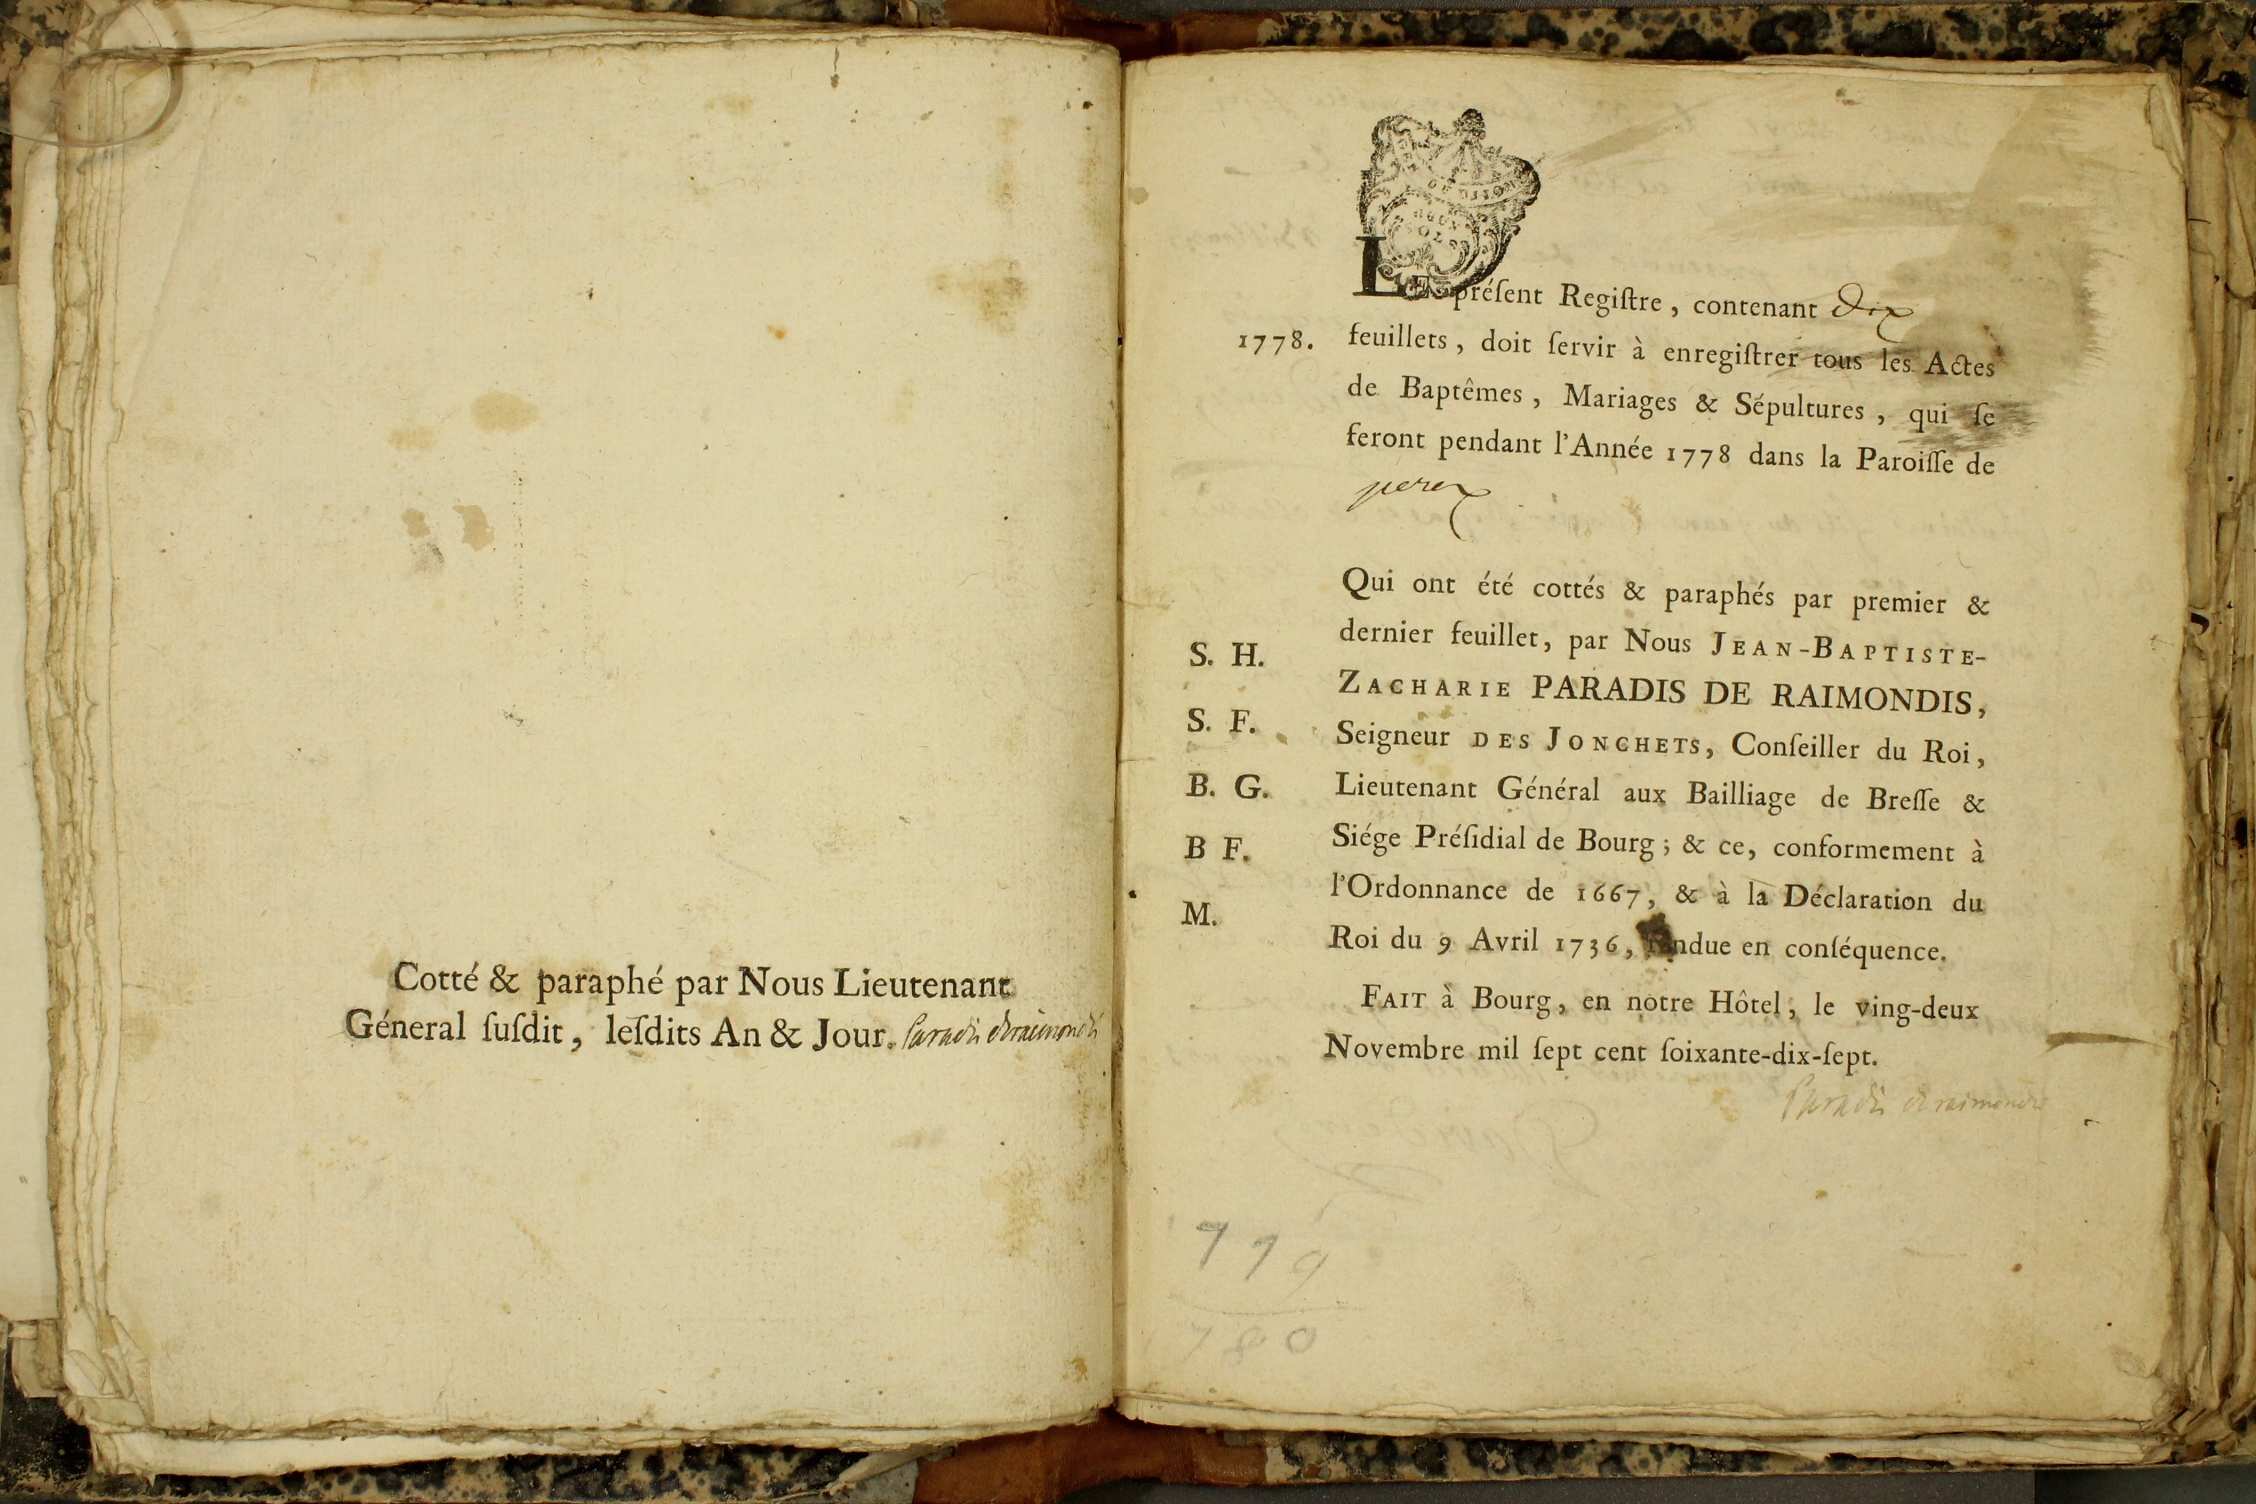 Cotté & paraphé par Nous Lieutenant
Géneral ſuſdit, leſdits An & Jour. Paradis deraimondis
LE préſent Regiſtre, contenant dix
1778.
feuillets, doit ſervir à enregiſtrer tous les Actes
de Baptêmes, Mariages & Sépultures, qui ſe
feront pendant l'Année 1778 dans la Paroiſſe de
perex
Qui ont été cottés & paraphés par premier &
dernier feuillet, par Nous JEAN-BAPTISTE-
ZACHARIE PARADIS DE RAIMONDIS,
Seigneur DES JONCHETS, Conſeiller du Roi,
Lieutenant Général aux Bailliage de Breſſe &
Siége Préſidial de Bourg; & ce, conformement à
l'Ordonnance de 1667, & à la Déclaration du
Roi du 9 Avril 1736, rendue en conſéquence.
FAIT à Bourg, en notre Hôtel, le ving-deux
Novembre mil ſept cent ſoixante-dix-ſept.
Paradis deraimondis
S. H.
S. F.
B. G.
B F.
M.
779
780